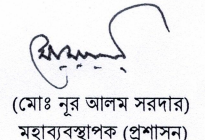 (মোঃ নূর আলম সরদার)
মহাব্যবস্থাপক (প্রশাসন)